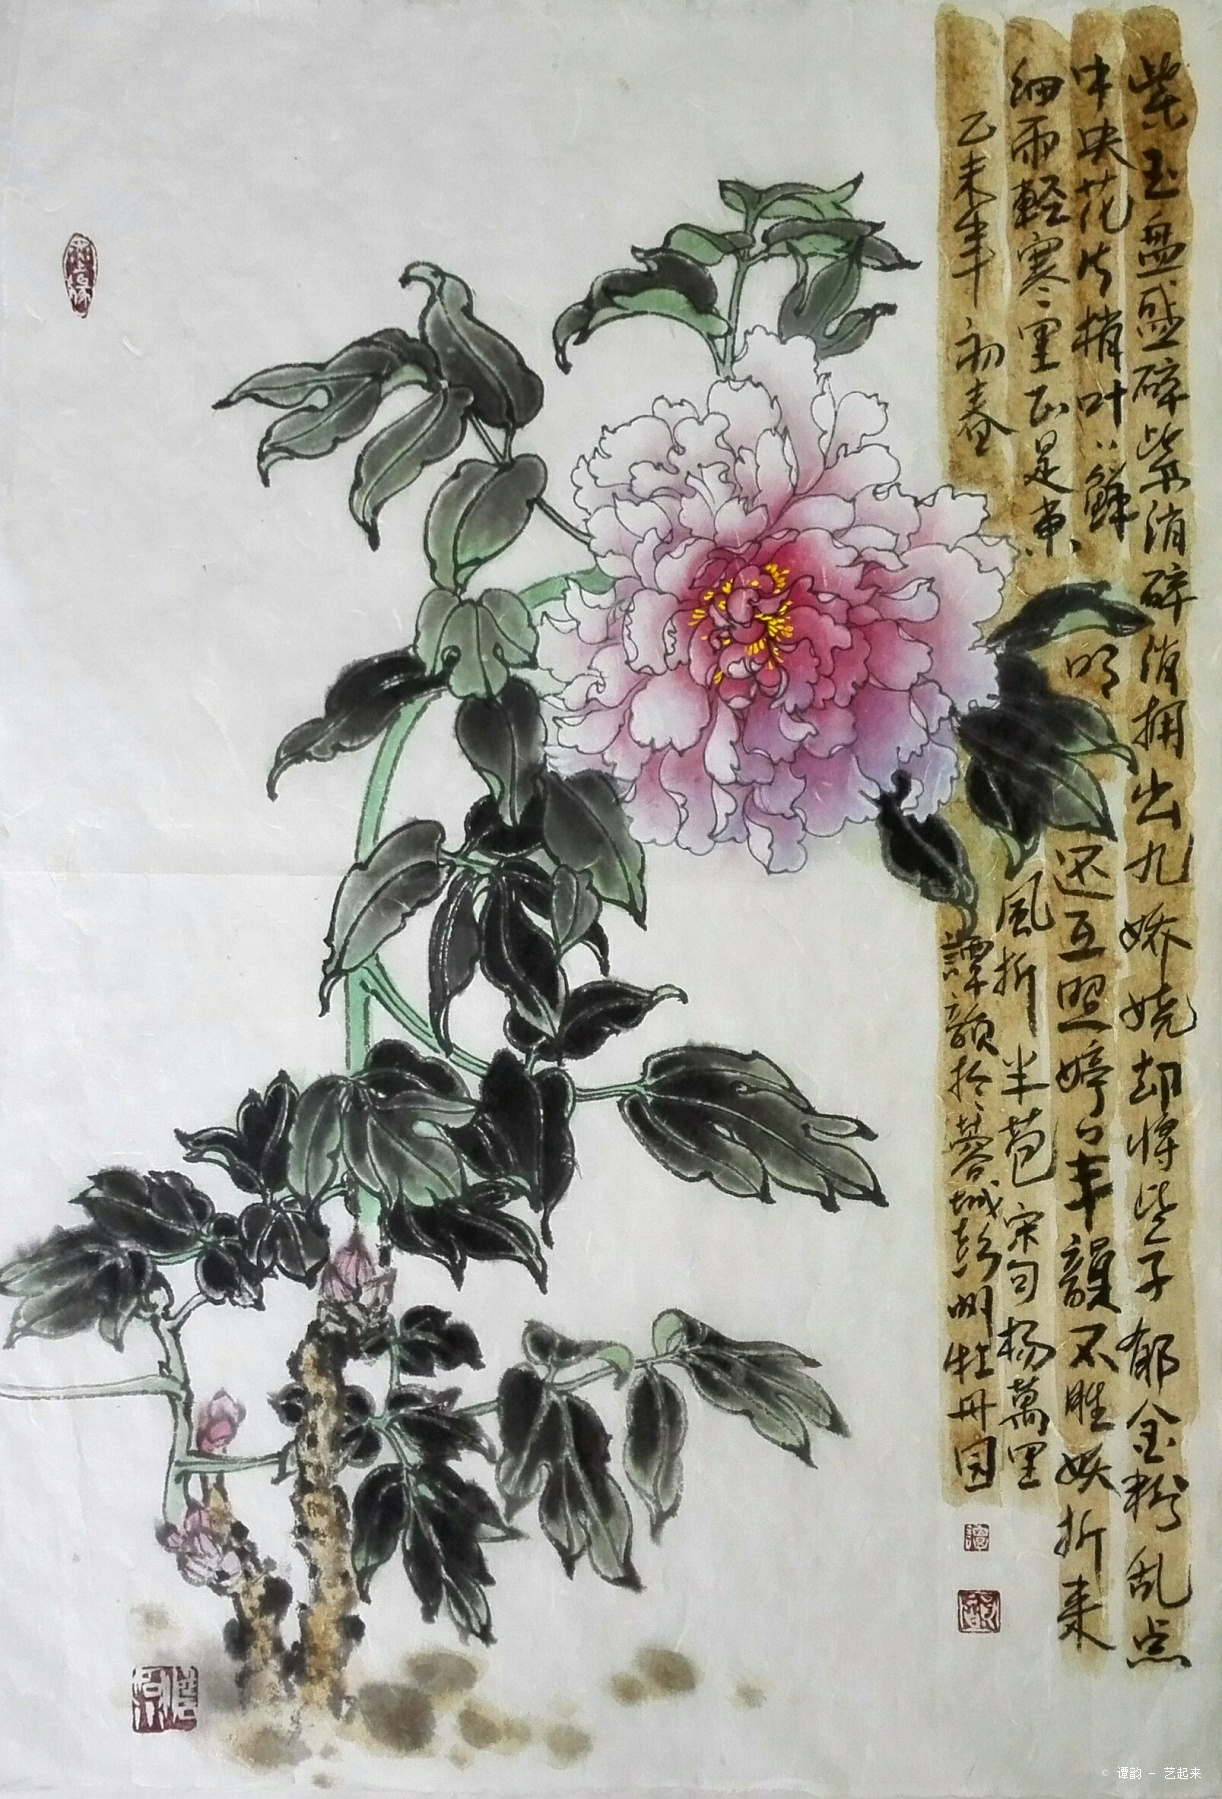 紫玉盘盛碎紫绡碎绡拥出九娇娆却将些子郁金粉乱点
中央花片梢叶〻鲜明还互照婷〻丰韻不胜妖折来
细雨軽寒〻里正是東風折半苞宋句杨萬里
乙未年初春譚韻於蓉城彭州牡丹园
譚
韻
© 谭韵 - 艺起来